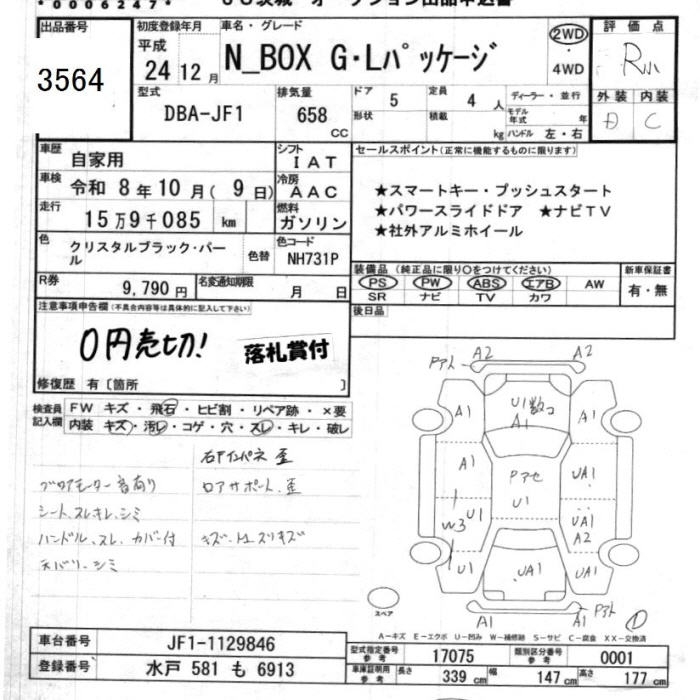 *0006247*
出品番号
3564
初度登録年月
平成
24 12月
車名・グレード
N_BOX G・Lパッケージ
2WD
・
4WD
評価点
R小
型式
DBA-JF1
排気量
658
CC
ドア
5
形状
定員
4人
積載
kg
ディーラー・並行
モデル年式 年
ハンドル 左・右
外装 内装
D C
車歴
自家用
シフト
IAT
車検
令和 8年10月( 9日)
冷房
AAC
走行
15万9千085 km
燃料
ガソリン
色
クリスタルブラック・パール
色替
色コード
NH731P
R券
9,790円
名変通知期限
月 日
セールスポイント(正常に機能するものに限ります)
★スマートキー・プッシュスタート
★パワースライドドア ★ナビTV
★社外アルミホイール
装備品(純正品に限り○をつけてください)
PS PW ABS エアB AW
SR ナビ TV カワ
新車保証書
有・無
後日品
注意事項申告欄(不具合内容等は具体的に記入して下さい)
0円売切!
落札賞付
修復歴 有〔箇所 〕
検査員記入欄
FW キズ・飛石・ヒビ割・リペア跡・×要
内装 キズ・汚レ・コゲ・穴・スレ・キレ・破レ
右Fインパネ 歪
ブロアモーター音有り
ロアサポート、歪
シート、スレ キレ、シミ
ハンドル、スレ カバー付
天バリ、シミ
A2
A2
A1
U1数コ
A1
A1
A1
Pアセ
UA1
U1
W3
U1
UA1
A2
U1
UA1
UA1
スペア
A1
A1
A-キズ E-エクボ U-凹み W-補修跡 S-サビ C-腐食 XX-交換済
車台番号
JF1-1129846
登録番号
水戸 581 も 6913
型式指定番号
参考
17075
類別区分番号
参考
0001
車庫証明用
参考
長さ
339 cm
幅
147 cm
高さ
177 cm